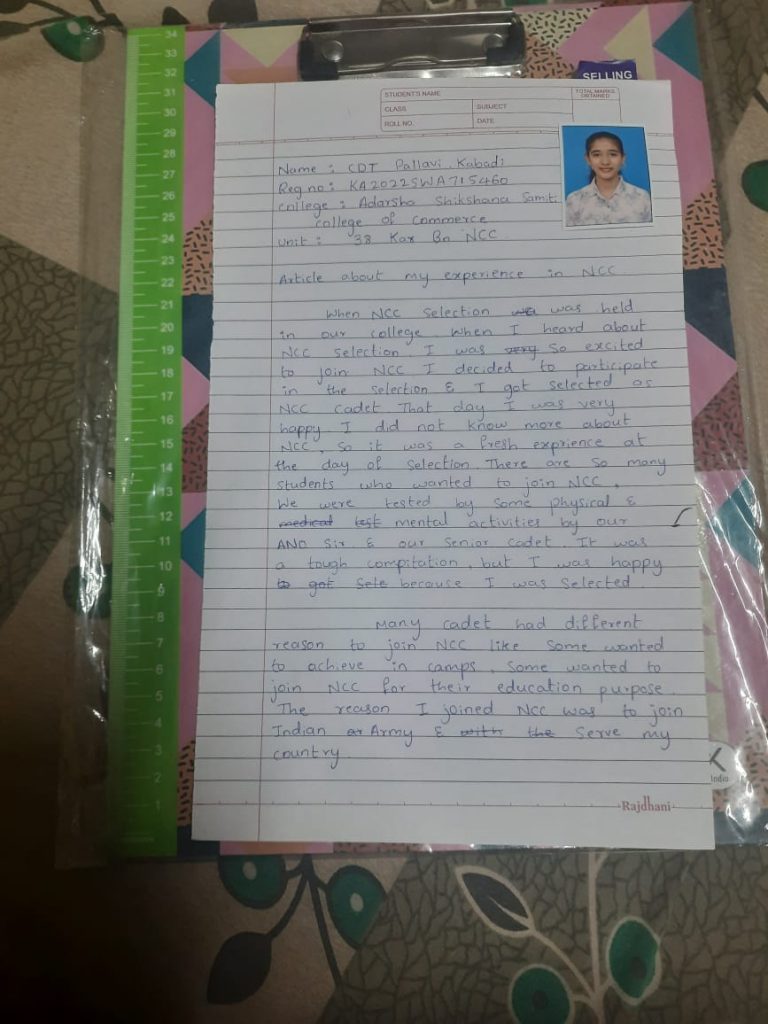 34
33
32
31
30
29
28
27
26
25
24
23
22
21
20
19
18
17
16
15
14
13
12
11
10
9
8
7
6
5
4
3
2
1
SELLING
STUDENT'S NAME
TOTAL MARKS OBTAINED
CLASS
SUBJECT
ROLL NO.
DATE
Name : CDT Pallavi Kabadi
Reg no : KA2022SWA715460
College : Adarsha Shikshana Samiti
college of commerce
Unit : 38 Kar Bn NCC
Article about my experience in NCC
When NCC Selection was held
in our college. When I heard about
NCC Selection. I was very So excited
to join NCC I decided to participate
in the selection & I got selected as
NCC cadet. That day I was very
happy I did not know more about
NCC, So it was a fresh exprience at
the day of selection. There are so many
students who wanted to join NCC.
We were tested by some physical &
medical test mental activities by our
ANO Sir & our Senior cadet. It was
a tough compitation, but I was happy
to got Sele because I was Selected
Many cadet had different
reason to join NCC like Some wanted
to achieve in camps. Some wanted to
join NCC for their education purpose.
The reason I joined NCC was to join
Indian Army & with the Serve my
country.
Rajdhani
India